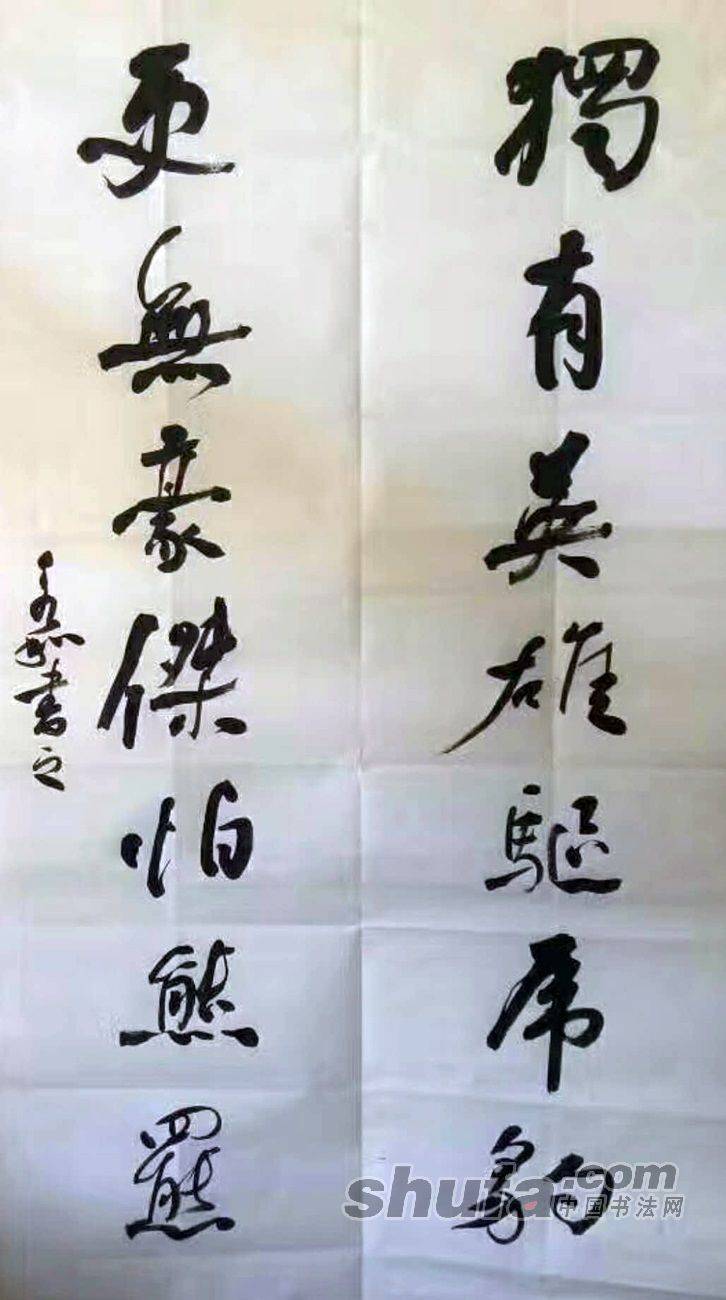 獨有英雄驅虎豹
更無豪傑怕熊羆
書之
shufa.com
中国书法网